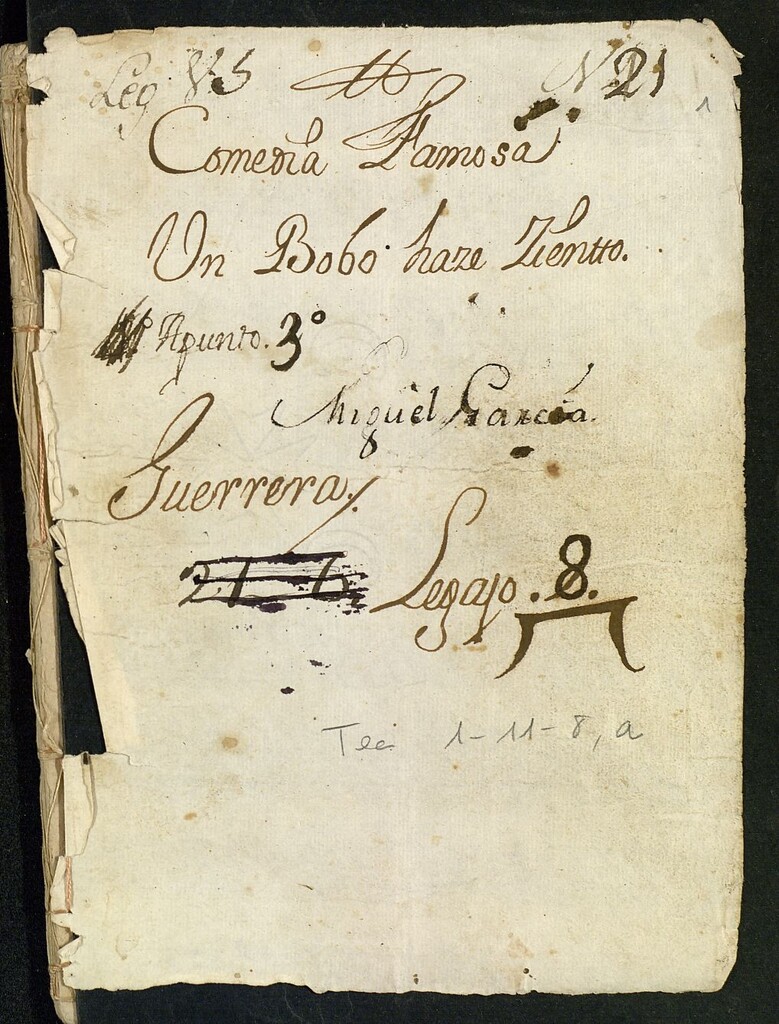 Leg N. 21
1
Comedia Famosa
Un Bobo haze Zientto.
Apunto. 3º
Miguel Garcia.
Guerrera.
Legajo. 8.
Tea 1-11-8, a